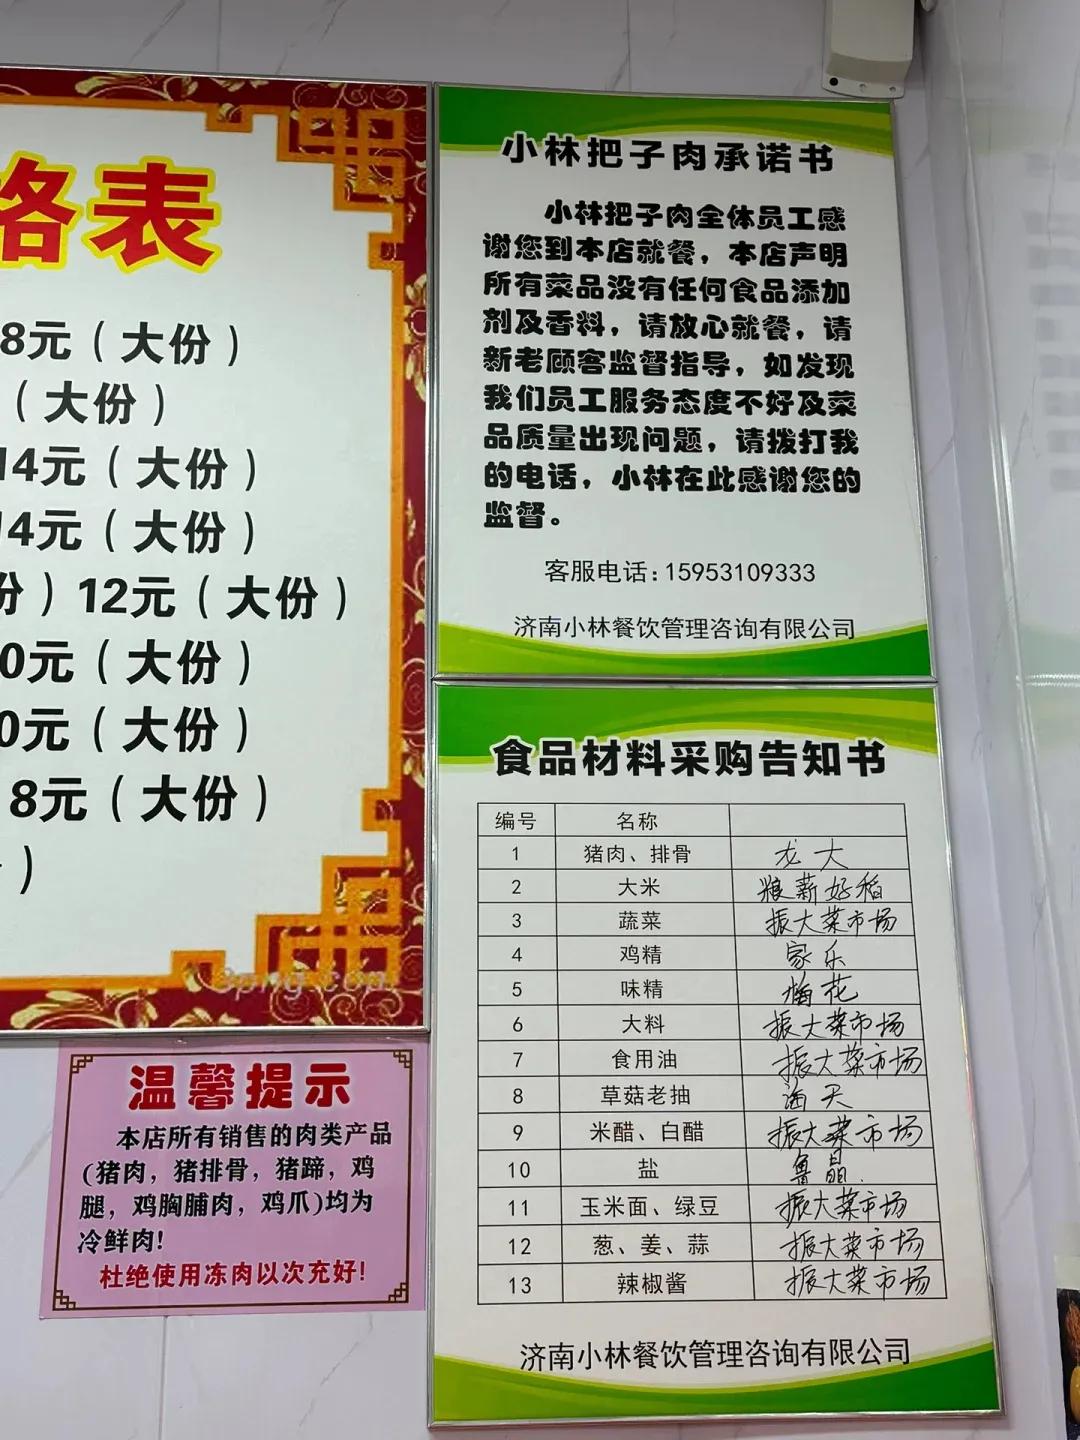 格表
8元（大份）
（大份）
14元（大份）
14元（大份）
份）12元（大份）
0元（大份）
0元（大份）
8元（大份）
）
3png.com
小林把子肉承诺书
小林把子肉全体员工感
谢您到本店就餐，本店声明
所有菜品没有任何食品添加
剂及香料，请放心就餐，请
新老顾客监督指导，如发现
我们员工服务态度不好及菜
品质量出现问题，请拨打我
的电话，小林在此感谢您的
监督。
客服电话:15953109333
济南小林餐饮管理咨询有限公司
食品材料采购告知书
编号 名称
1 猪肉、排骨 龙大
2 大米 粮薪好稻
3 蔬菜 振大菜市场
4 鸡精 家乐
5 味精 梅花
6 大料 振大菜市场
7 食用油 振大菜市场
8 草菇老抽 海天
9 米醋、白醋 振大菜市场
10 盐 鲁晶.
11 玉米面、绿豆 振大菜市场
12 葱、姜、蒜 振大菜市场
13 辣椒酱 振大菜市场
济南小林餐饮管理咨询有限公司
温馨提示
本店所有销售的肉类产品
(猪肉，猪排骨，猪蹄，鸡
腿，鸡胸脯肉，鸡爪)均为
冷鲜肉!
杜绝使用冻肉以次充好!